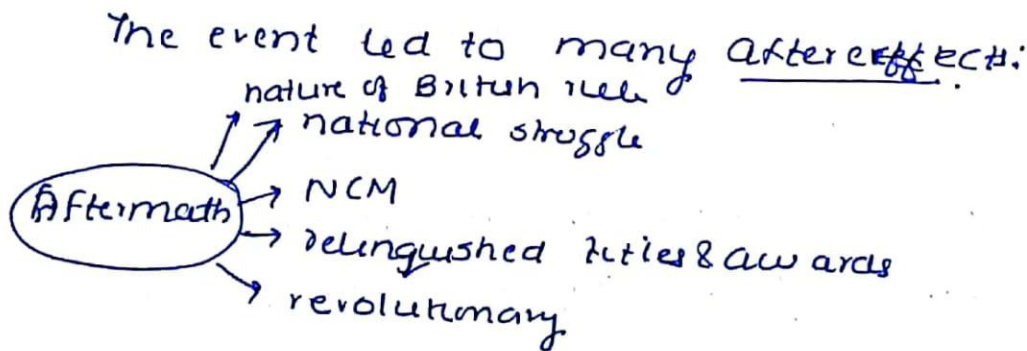 The event led to many aftereffect:
nature of British rule
national struggle
Aftermath
NCM
relinquished titles & awards
revolutionary